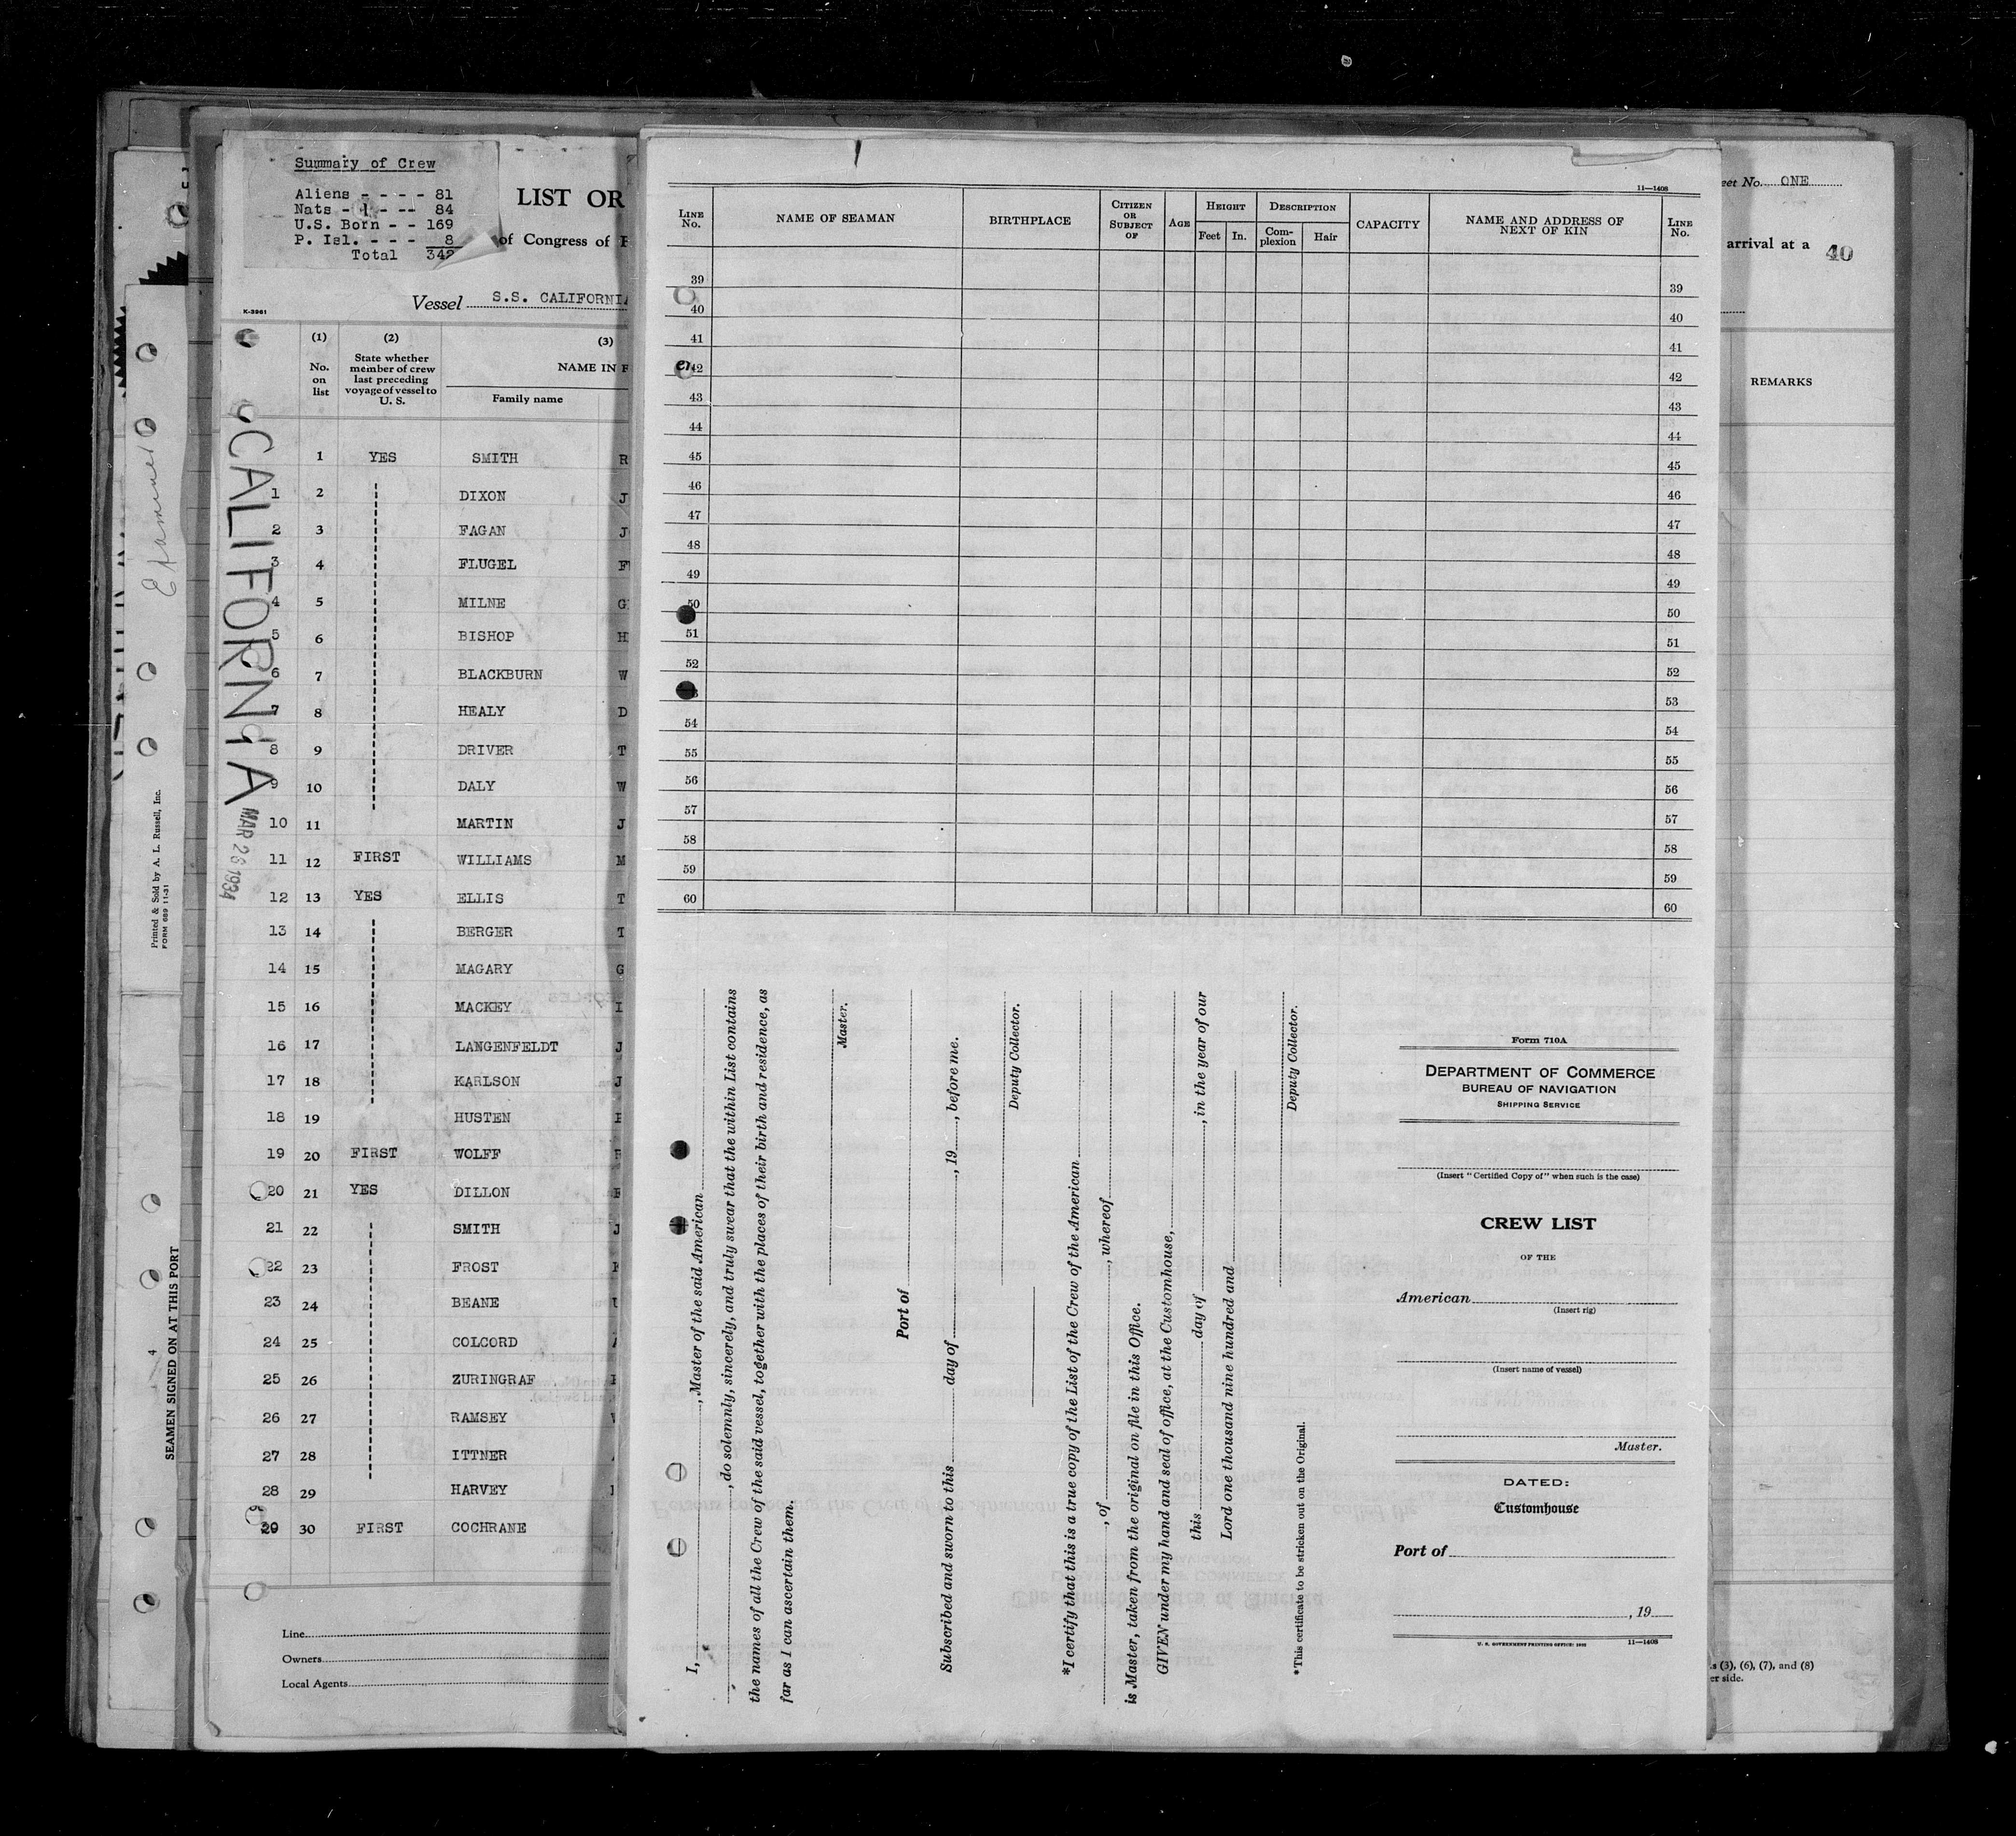 Summary of Crew
Aliens - - - - 81
Nats - 1 - -- 84
U.S. Born - - 169
P. Isl. - - - 8
Total 342
LIST OR
of Congress of
Vessel S.S. CALIFORNIA
K-3961
(1) (2) (3)
No. on list
State whether member of crew last preceding voyage of vessel to U. S.
NAME IN F
Family name
CALIFORNIA
MAR 26 1934
1 YES SMITH R
1 2 DIXON J
2 3 FAGAN J
3 4 FLUGEL F
4 5 MILNE G
5 6 BISHOP H
6 7 BLACKBURN W
7 8 HEALY D
8 9 DRIVER T
9 10 DALY W
10 11 MARTIN J
11 12 FIRST WILLIAMS M
12 13 YES ELLIS T
13 14 BERGER T
14 15 MAGARY G
15 16 MACKEY I
16 17 LANGENFELDT J
17 18 KARLSON J
18 19 HUSTEN
19 20 FIRST WOLFF
20 21 YES DILLON
21 22 SMITH J
22 23 FROST
23 24 BEANE
24 25 COLCORD
25 26 ZURINGRAF
26 27 RAMSEY
27 28 ITTNER
28 29 HARVEY
29 30 FIRST COCHRANE
Line
Owners
Local Agents
Printed & Sold by A. L. Russell, Inc.
FORM 689 11-31
4
SEAMEN SIGNED ON AT THIS PORT
11—1408
LINE No. NAME OF SEAMAN BIRTHPLACE CITIZEN OR SUBJECT OF AGE HEIGHT Feet In. DESCRIPTION Complexion Hair CAPACITY NAME AND ADDRESS OF NEXT OF KIN LINE No.
39 39
40 40
41 41
42 42
43 43
44 44
45 45
46 46
47 47
48 48
49 49
50 50
51 51
52 52
53
54 54
55 55
56 56
57 57
58 58
59 59
60 60
I, , Master of the said American
, do solemnly, sincerely, and truly swear that the within List contains
the names of all the Crew of the said vessel, together with the places of their birth and residence, as
far as I can ascertain them.
Master.
Port of
Subscribed and sworn to this day of , 19 , before me.
Deputy Collector.
*I certify that this is a true copy of the List of the Crew of the American
, of , whereof
is Master, taken from the original on file in this Office.
GIVEN under my hand and seal of office, at the Customhouse,
this day of , in the year of our
Lord one thousand nine hundred and
Deputy Collector.
*This certificate to be stricken out on the Original.
Form 710A
DEPARTMENT OF COMMERCE
BUREAU OF NAVIGATION
SHIPPING SERVICE
(Insert "Certified Copy of" when such is the case)
CREW LIST
OF THE
American
(Insert rig)
(Insert name of vessel)
Master.
DATED:
Customhouse
Port of
, 19
U. S. GOVERNMENT PRINTING OFFICE: 11—1408
eet No. ONE
arrival at a 40
REMARKS
s (3), (6), (7), and (8)
er side.